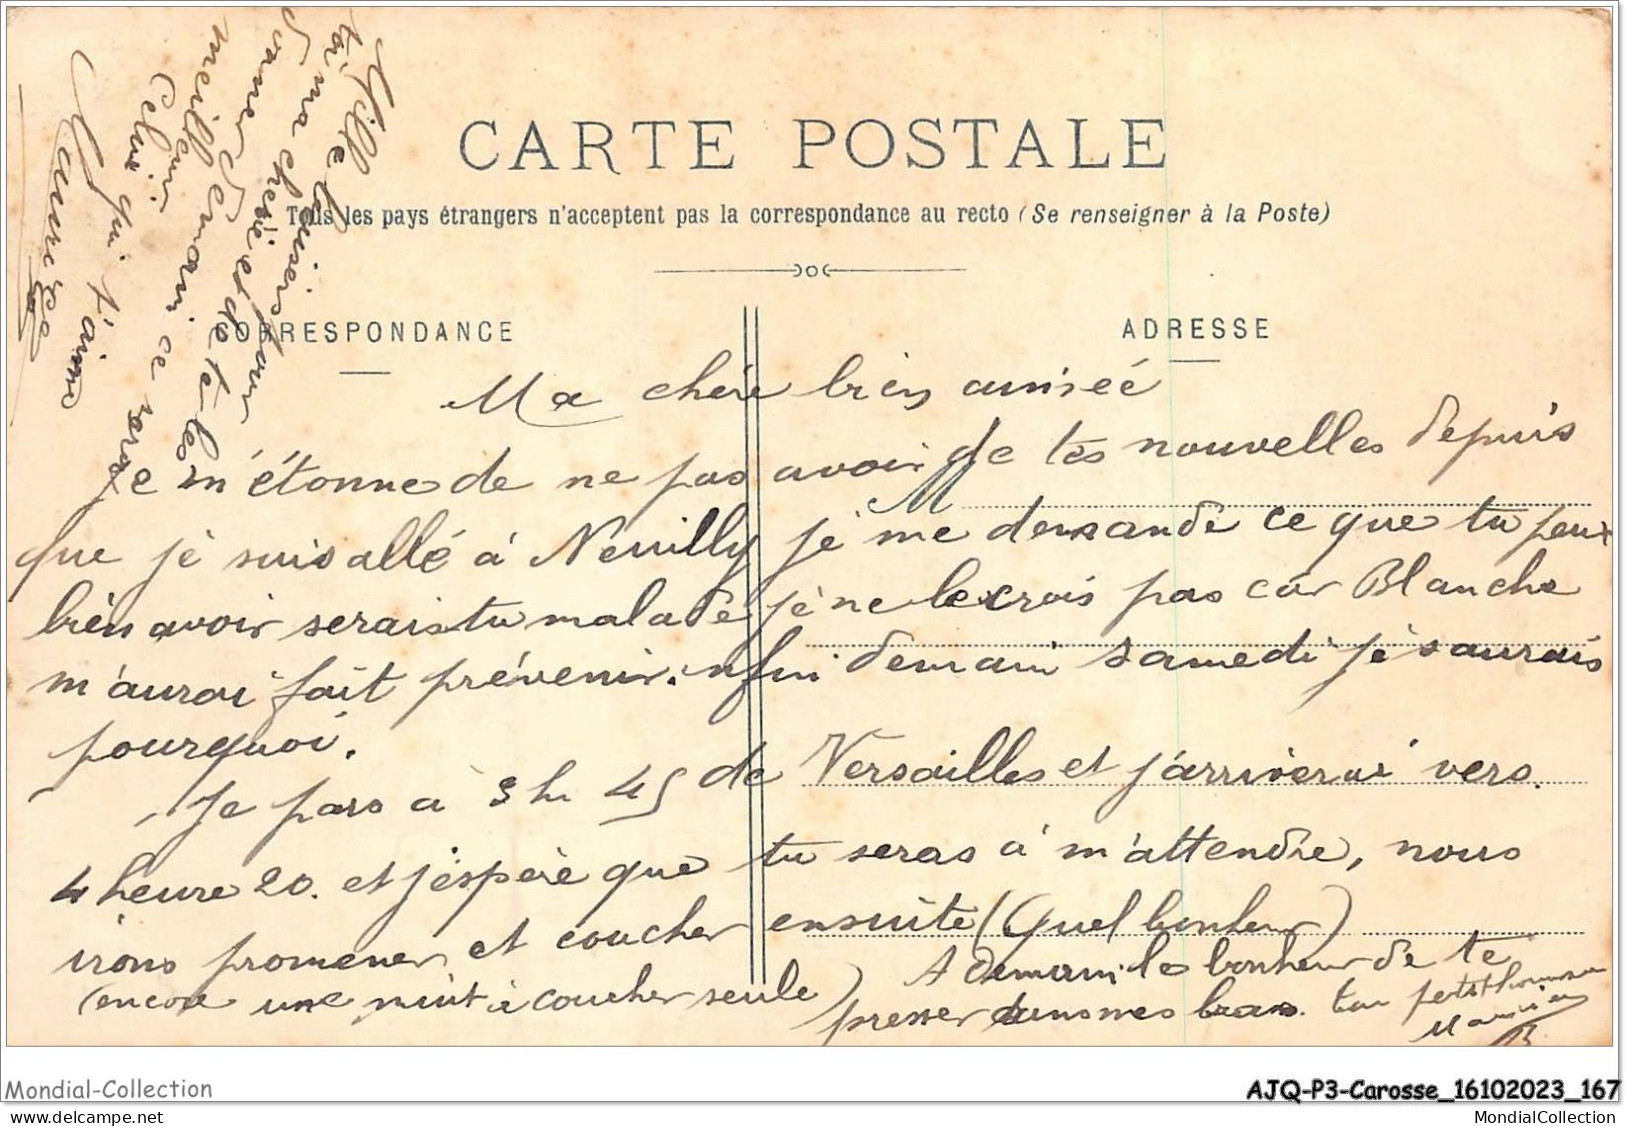 CARTE POSTALE
Tous les pays étrangers n'acceptent pas la correspondance au recto (Se renseigner à la Poste)
CORRESPONDANCE
ADRESSE
Ma chère bien aimée
Je m'étonne de ne pas avoir de tes nouvelles depuis
M
que je suis allé à Neuilly je me demande ce que tu peux
bien avoir serais tu malade je ne le crois pas car Blanche
m'aurai fait prévenir. enfin demain samedi je saurais
pourquoi.
Je pars à 3 h 45 de Versailles et j'arriverai vers
4 heure 20. et j'éspère que tu seras à m'attendre, nous
irons promener et coucher ensuite (Quel bonheur)
(encore une nuit à coucher seule) A demain le bonheur de te
presser dans mes bras. ton petit homme
Maurice
B
Mille
toi ma chérie et de te les
meilleur
Celui qui t'aime
Maurice
Mondial-Collection
AJQ-P3-Carosse_16102023_167
www.delcampe.net
MondialCollection